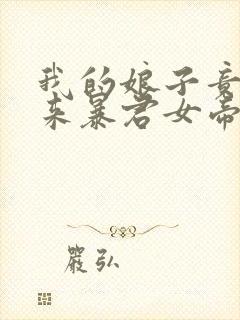 我的娘子竟
来暴君女帝
嚴弘